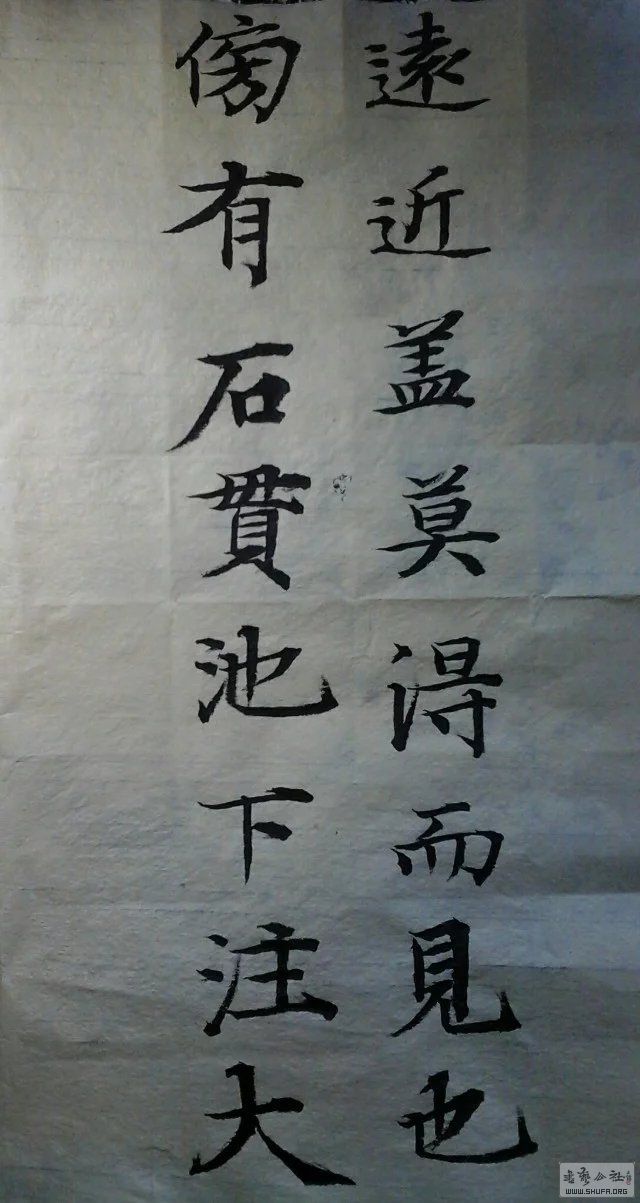 遠近盖莫淂而見也
傍有石貫池下注大
WWW.SHUFA.ORG